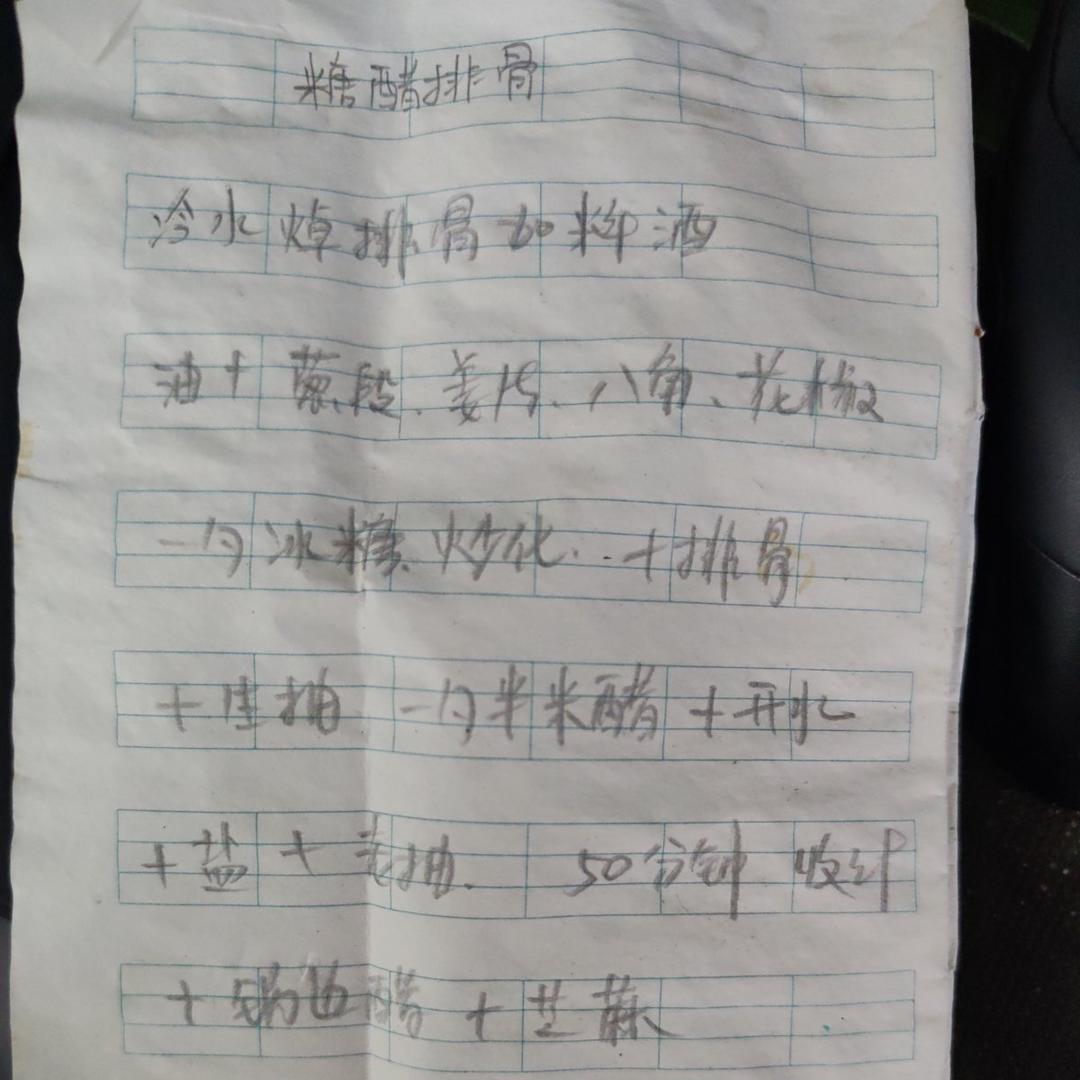 糖醋排骨
冷水焯排骨加料酒
油+葱段、姜片、八角、花椒
一勺冰糖、炒化..+排骨
+生抽 一勺半米醋+开水
+盐+老抽. 50分钟 收汁
+锅边醋+芝麻